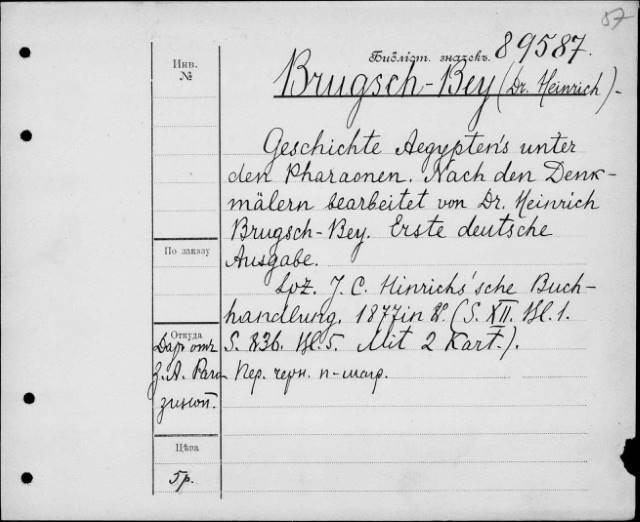 57
Библіот. значекъ. 89587.
Инв.
№
Brugsch-Bey (Dr. Heinrich).
Geschichte Aegypten's unter
den Pharaonen. Nach den Denk-
mälern bearbeitet von Dr. Heinrich
Brugsch-Bey. Erste deutsche
По заказу
Ausgabe.
Lpz. J. C. Hinrichs'sche Buch-
handlung. 1877 in 8°. (S. XII. Bl. 1.
Откуда
S. 836. Bl. 5. Mit 2 Kart.).
Даръ отъ
З. А. Раго-
зиной.
Пер. черн. п-шагр.
Цѣна
5р.